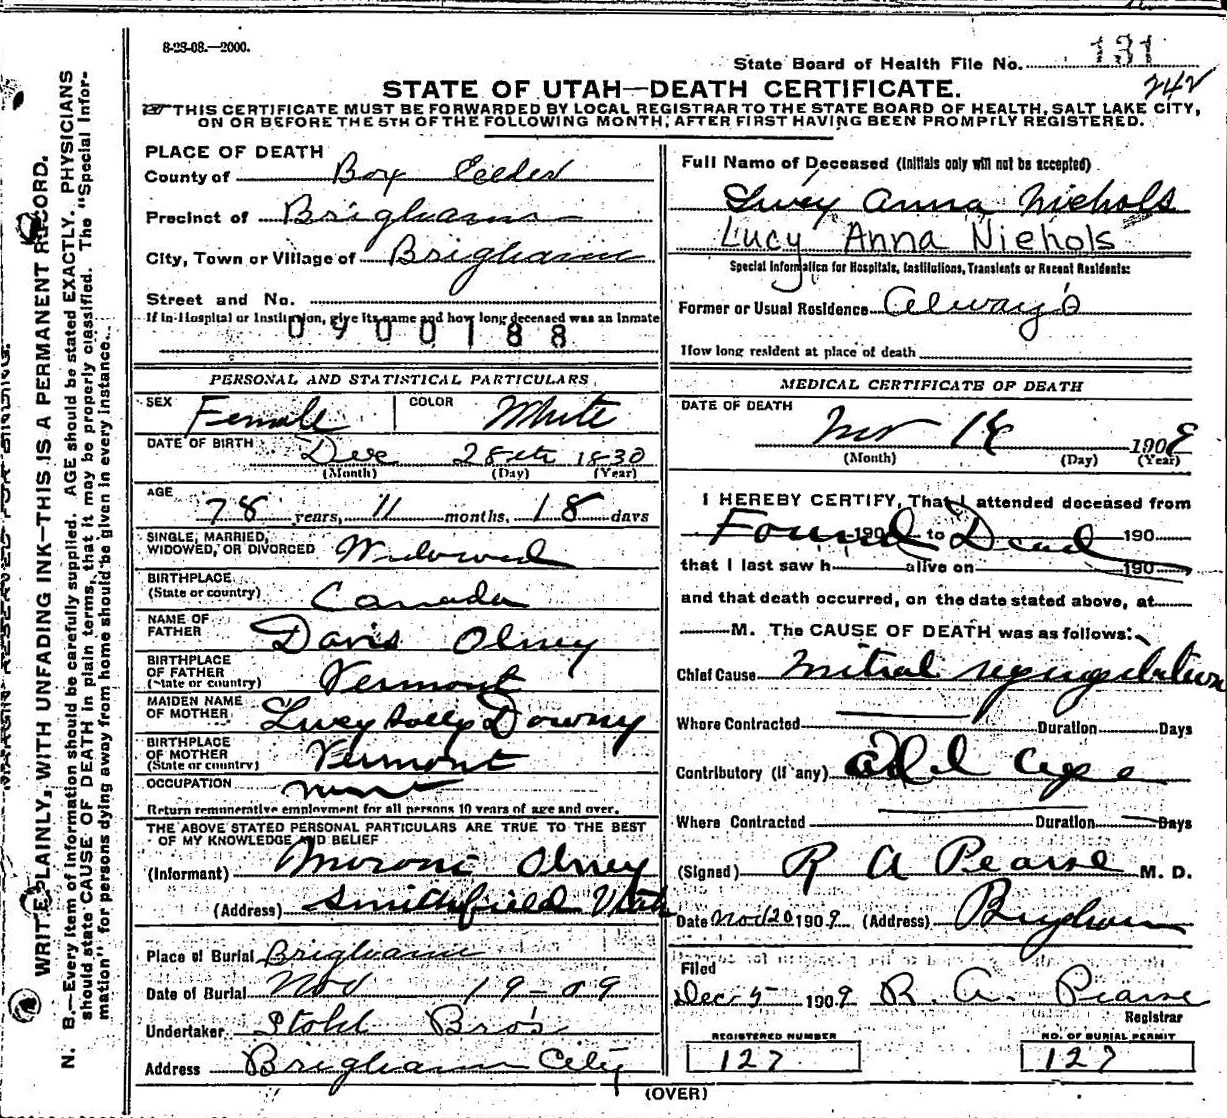 8-23-08.—2000.
State Board of Health File No. 131
242
STATE OF UTAH—DEATH CERTIFICATE.
THIS CERTIFICATE MUST BE FORWARDED BY LOCAL REGISTRAR TO THE STATE BOARD OF HEALTH, SALT LAKE CITY,
ON OR BEFORE THE 5TH OF THE FOLLOWING MONTH, AFTER FIRST HAVING BEEN PROMPTLY REGISTERED.
WRITE PLAINLY, WITH UNFADING INK—THIS IS A PERMANENT RECORD.
N. B.—Every item of information should be carefully supplied. AGE should be stated EXACTLY. PHYSICIANS
should state CAUSE OF DEATH in plain terms, that it may be properly classified. The "Special Infor-
mation" for persons dying away from home should be given in every instance.
PLACE OF DEATH
County of Box Elder
Precinct of Brigham
City, Town or Village of Brigham
Street and No.
If in Hospital or Institution, give its name and how long deceased was an Inmate
0900188
PERSONAL AND STATISTICAL PARTICULARS
SEX Female COLOR White
DATE OF BIRTH Dec 28th 1830
(Month) (Day) (Year)
AGE 78 years, 11 months, 18 days
SINGLE, MARRIED,
WIDOWED, OR DIVORCED Widowed
BIRTHPLACE
(State or country) Canada
NAME OF
FATHER Davis Olney
BIRTHPLACE
OF FATHER
(State or country) Vermont
MAIDEN NAME
OF MOTHER Lucy Sally Downy
BIRTHPLACE
OF MOTHER
(State or country) Vermont
OCCUPATION none
Return remunerative employment for all persons 10 years of age and over.
THE ABOVE STATED PERSONAL PARTICULARS ARE TRUE TO THE BEST
OF MY KNOWLEDGE AND BELIEF
(Informant) Moroni Olney
(Address) Smithfield Utah
Place of Burial Brigham
Date of Burial Nov 19-09
Undertaker Stohl Bro's
Address Brigham City
Full Name of Deceased (Initials only will not be accepted)
Lucy Anna Nichols
Lucy Anna Niehols
Special Information for Hospitals, Institutions, Transients or Recent Residents:
Former or Usual Residence Always
How long resident at place of death
MEDICAL CERTIFICATE OF DEATH
DATE OF DEATH
Nov 18 1909
(Month) (Day) (Year)
I HEREBY CERTIFY, That I attended deceased from
Found 190 to Dead 190
that I last saw h alive on 190
and that death occurred, on the date stated above, at
M. The CAUSE OF DEATH was as follows:
Chief Cause Mitral regurgitation
Where Contracted Duration Days
Contributory (if any) Old age
Where Contracted Duration Days
(Signed) R A Pearse M. D.
Date Nov 20 1909 (Address) Brigham
Filed
Dec 5 1909 R. A. Pearse
Registrar
REGISTERED NUMBER
127
NO. OF BURIAL PERMIT
127
(OVER)